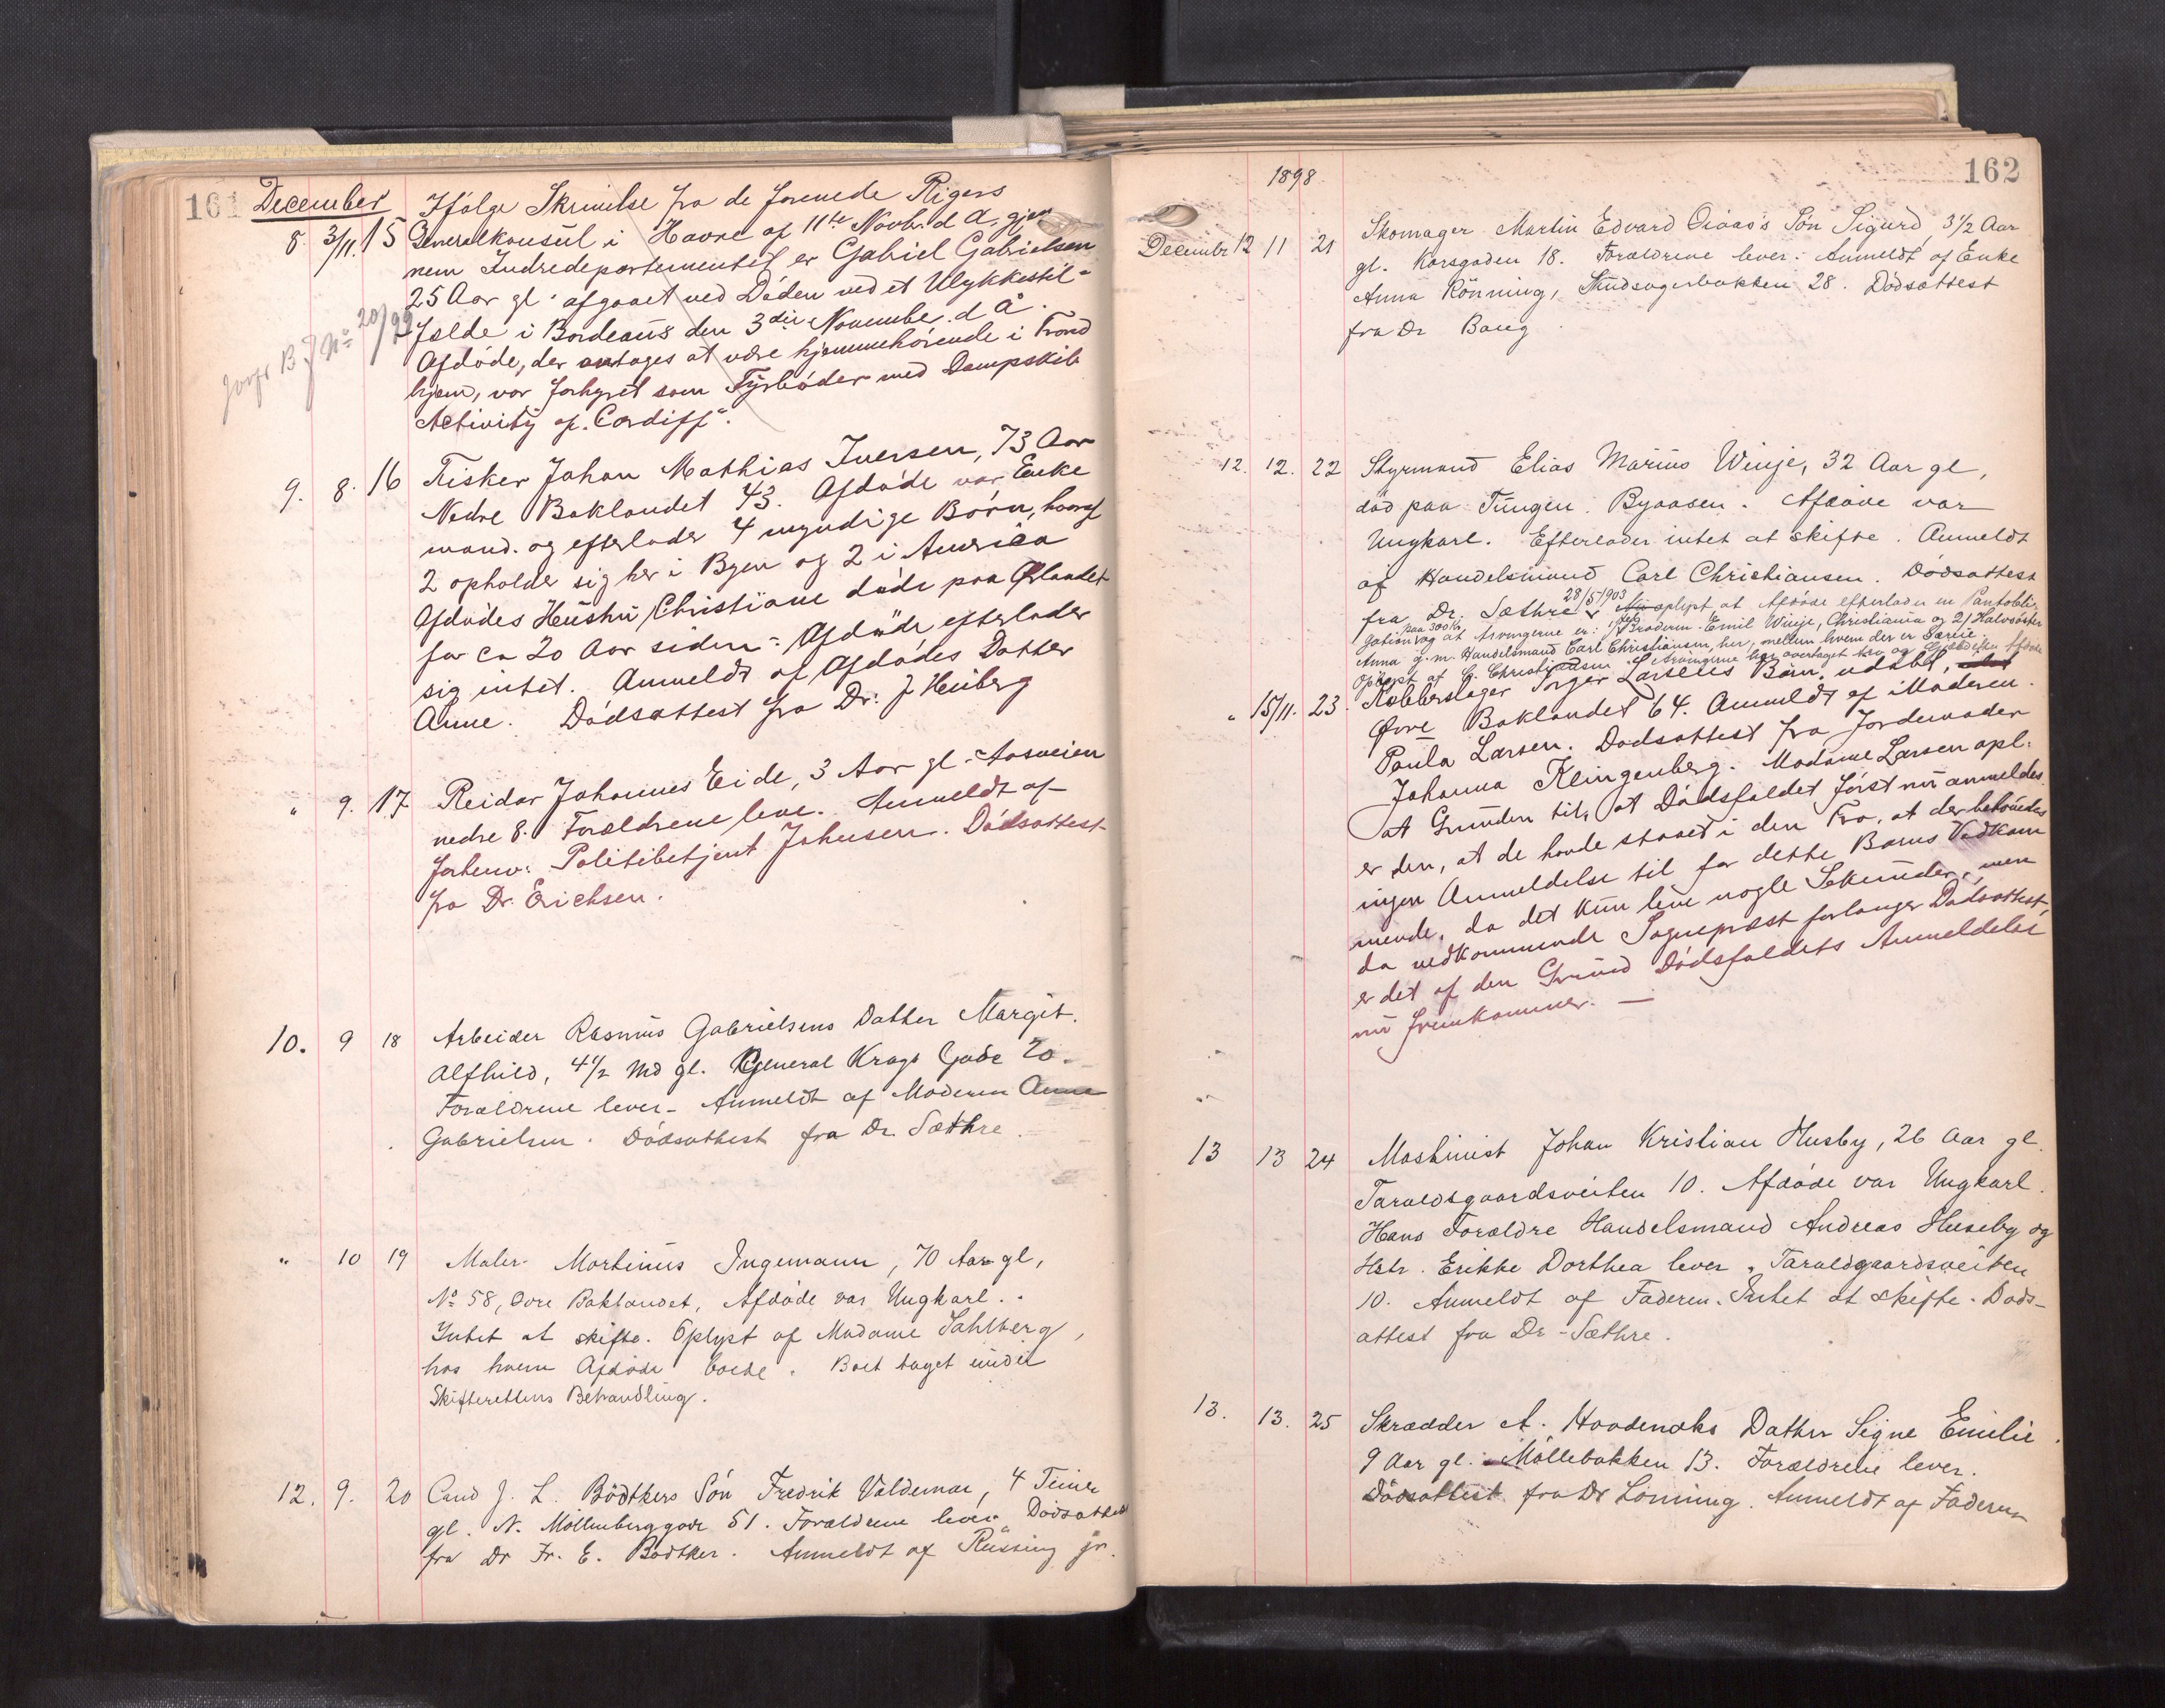 161 December
Ifølge Skrivelse fra de forenede Rigers
8. 3/11. 15 Generalkonsül i Havre af 11te Novbr. d A. gjen
nem Indredepartementet er Gabriel Gabrielsen
25 Aar gl. afgaaet ved Døden ved et Ulykkestil-
fælde i Bordeaux den 3die November d A.
Afdøde, der antages at være hjemmehørende i Trond
hjem, var forhyret som Fyrbøder med Dampskib
Activity af "Cardiff".
Jvnfr B J No 20/99
9. 8. 16 Fisker Johan Mathias Iversen, 73 Aar
Nedre Baklandet 43. Afdøde var Enke
mand. og efterlader 4 myndige Børn, hvoraf
2 opholder sig her i Byen og 2 i America
Afdødes Hustru Christiane døde paa Ørlandet
for ca 20 Aar siden - Afdøde efterlader
sig intet. Anmeldt af Afdødes Datter
Anne. Dødsattest fra Dr: J Heiberg
" 9. 17 Reidar Johannes Eide, 3 Aar gl - Aasveien
nedre 8. Forældrene leve. Anmeldt af
forhenv: Politibetjent Johnsen. Dødsattest
fra Dr. Erichsen.
10. 9 18 Arbeider Rasmus Gabrielsens Datter Margit.
Alfhild, 4 1/2 Md gl. General Krags Gade 20.
Forældrene lever - Anmeldt af Moderen Anne
Gabrielsen. Dödsattest fra Dr. Sæthre.
" 10 19 Maler Martinus Ingemann, 70 Aar gl,
No 58, Øvre Baklandet, Afdøde var Ungkarl.
Intet at skifte. Oplyst af Madame Sahlberg,
hos hvem Afdøde boede. Boet taget under
Skifterettens Behandling.
12. 9. 20 Cand J. L. Bödtkers Sön Fredrik Valdemar, 4 Timer
gl. N. Möllenberggade 51. Forældrene lever Dödsattest
fra Dr Fr. E. Bödtker. Anmeldt af Rüssing jr.
1898
162
Decembr 12 11 21 Skomager Martin Edvard Sön Sigurd 3 1/2 Aar
gl. Korsgaden 18. Forældrene lever. Anmeldt af Enke
Anna Rönning, 28. Dödsattest
fra Dr Bang.
12. 12. 22 Styrmand Elias Marius Winje, 32 Aar gl,
död paa Tungen. Byaasen. Afdöde var
Ungkarl. Efterlader intet at skifte. Anmeldt
af Handelsmand Carl Christiansen. Dödsattest
fra Dr. Sæthre. 28/5/903 oplyst at Afdöde efterlader en Pantobli-
gation paa 300 Kr, og at Arvingerne er: 1/ Broderen Emil Winje, Christiania og 2/ Halvsöster
Anna g. m. Handelsmand Carl Christiansen, her, mellem hvem der er Særeie.
Oplyst af C. Christiansen. Arvingerne har overtaget Arv og Gjæld efter Afdøde
" 15/11. 23. Kobberslager Torger Larsens Barn, udøbt,
Øvre Baklandet 64. Anmeldt af Moderen.
Paula Larsen. Dødsattest fra Jordemoder
Johanna Klingenberg. Madame Larsen opl.
at Grunden til, at Dødsfaldet først nu anmeldes
er den, at de havde staaet i den Tro, at der behøvedes
ingen Anmeldelse til for dette Barns Vedkom
mende, da det kun leve nogle Sekunder, men
da vedkommende Sognepræst forlanger Dødsattest,
er det af den Grund Dødsfaldets Anmeldelse
nu fremkommer. —
13 13 24 Maskinist Johan Kristian Husby, 26 Aar gl.
Taraldsgaardsveiten 10. Afdøde var Ungkarl.
Hans Forældre Handelsmand Andreas Huseby og
Hstr. Erikke Dorthea lever, Taraldgaardsveiten
10. Anmeldt af Faderen. Intet at skifte. Døds-
attest fra Dr. Sæthre.
13. 13. 25 Skrædder A. Datter Signe Emilie.
9 Aar gl. Möllebakken 13. Forældrene lever.
Dödsattest fra Dr Lönning. Anmeldt af Faderen